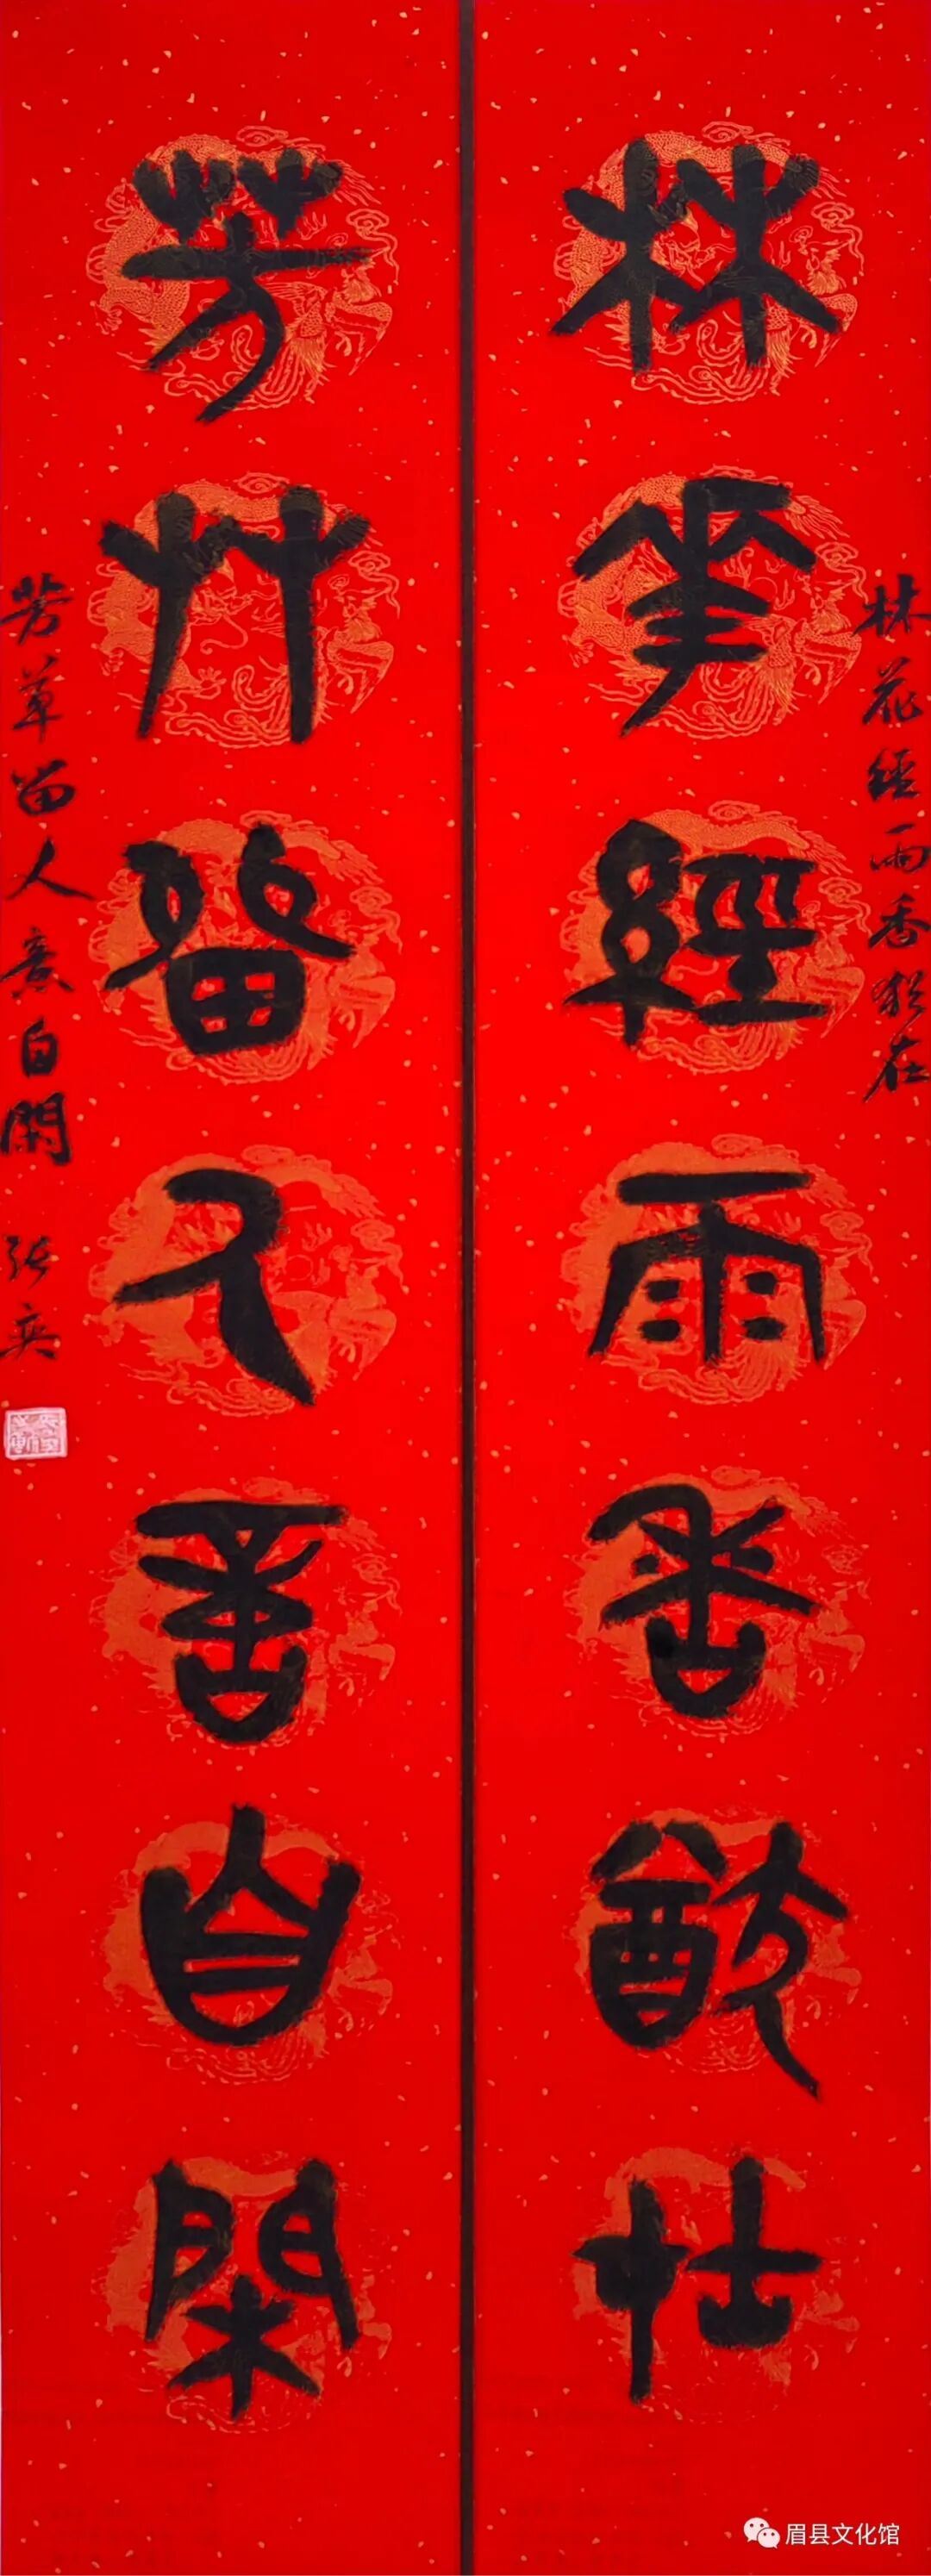 林花經雨香猶在
林花经雨香犹在
芳艸留人意自閑
芳草留人意自閑 张奕
眉县文化馆